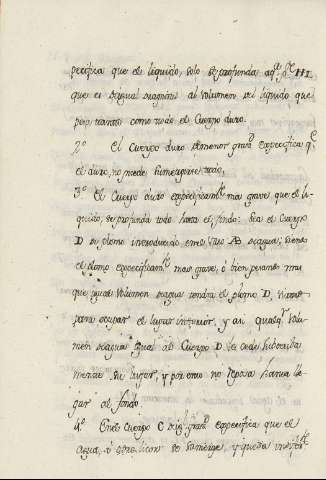 pecifica que el liquido, solo se profunda aq.ª p.te HI
que es de igual magnitud al Volumen del liquido que
pesa tanto como todo el Cuerpo duro.
2º El Cuerpo duro de menor grav.d especifica q.e
el duro, no puede sumergirse todo,
3º El Cuerpo duro especificam.te mas grave que el li-
quido, se profunda todo hasta el fondo: Sea el Cuerpo
D de plomo introducido en el Vaso AB de agua, siendo
el plomo especificam.te mas grave, ó bien pesando mas
que igual Volumen de agua tendra el plomo D,
para ocupar el lugar inferior, y asi qualq.r Volu-
men de agua igual al Cuerpo D le cede
mente su lugar, y por esto no reposa hasta lle-
gar al fondo.
4º En el Cuerpo C de ig.l grav.d especifica que el
agua, ó otro licor se sumerge, y queda